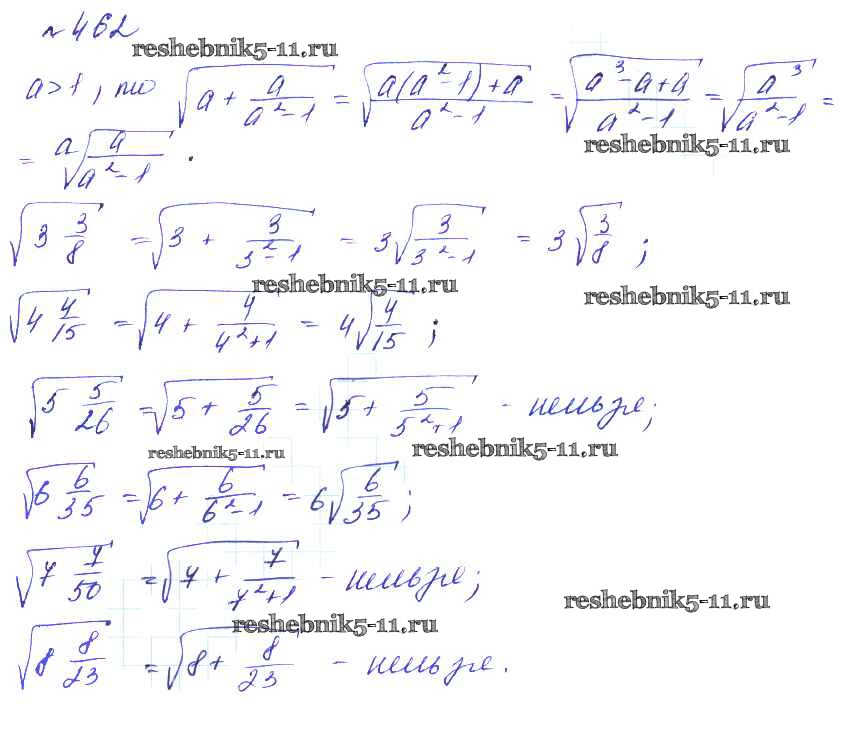 №462
reshebnik5-11.ru
a>1, то √(a + a/(a²-1)) = √((a(a²-1)+a)/(a²-1)) = √((a³-a+a)/(a²-1)) = √(a³/(a²-1)) =
reshebnik5-11.ru
= a√(a/(a²-1)).
√(3 3/8) = √(3 + 3/(3²-1)) = 3√(3/(3²-1)) = 3√(3/8);
reshebnik5-11.ru
reshebnik5-11.ru
√(4 4/15) = √(4 + 4/(4²+1)) = 4√(4/15);
√(5 5/26) = √(5 + 5/26) = √(5 + 5/(5²+1)) - нельзя;
reshebnik5-11.ru
reshebnik5-11.ru
√(6 6/35) = √(6 + 6/(6²-1)) = 6√(6/35);
√(7 7/50) = √(7 + 7/(7²+1)) - нельзя;
reshebnik5-11.ru
reshebnik5-11.ru
√(8 8/23) = √(8 + 8/23) - нельзя.